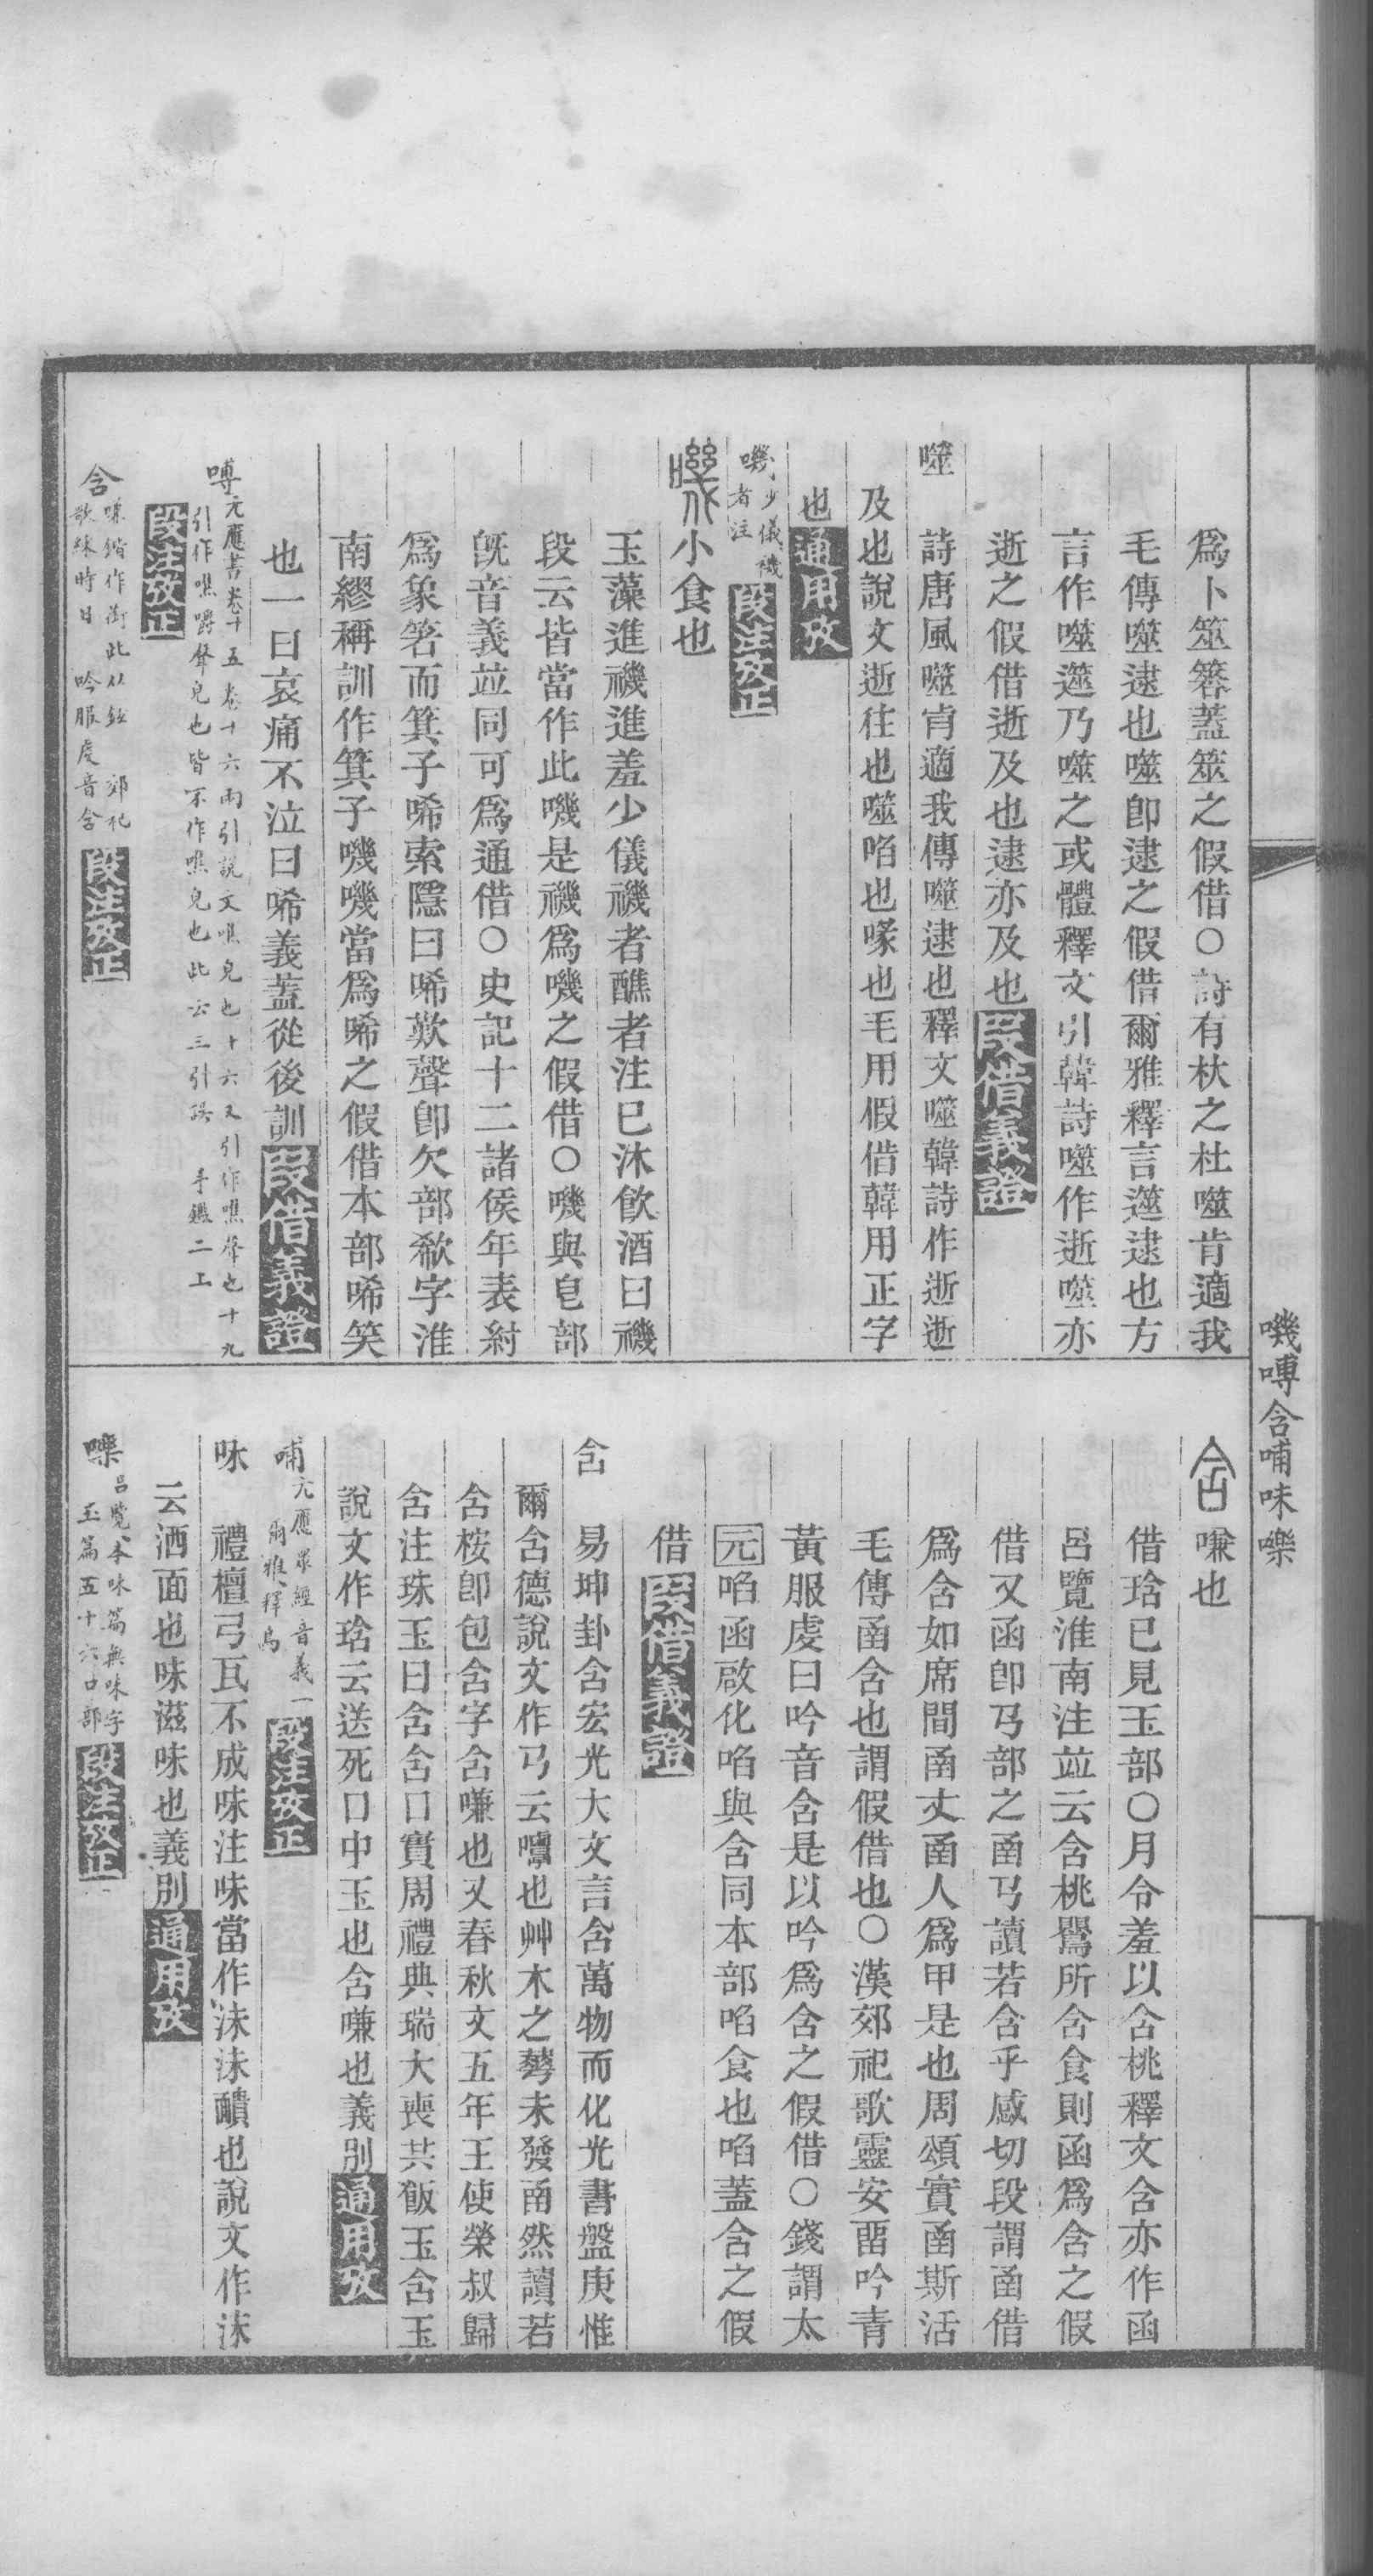 爲卜筮簭蓋筮之假借○詩有杕之杜噬肯適我
毛傳噬逮也噬卽逮之假借爾雅釋言遾逮也方
言作噬遾乃噬之或體釋文引韓詩噬作逝噬亦
逝之假借逝及也逮亦及也叚借義證
噬　詩唐風噬肎適我傳噬逮也釋文噬韓詩作逝逝
及也說文逝往也噬啗也喙也毛用假借韓用正字
也通用攷
嘰少儀禨
者注段注攷正
嘰小食也
玉藻進禨進羞少儀禨者醮者注已沐飮酒曰禨
段云皆當作此嘰是禨爲嘰之假借○嘰與皀部
旣音義竝同可爲通借○史記十二諸侯年表紂
爲象箸而箕子唏索隱曰唏歎聲卽欠部欷字淮
南繆稱訓作箕子嘰嘰當爲唏之假借本部唏笑
也一曰哀痛不泣曰唏義蓋從後訓叚借義證
噂元應書卷十五卷十六兩引說文噍皃也十六又引作噍聲也十九
引作噍嚼聲皃也皆不作噍皃也此云三引誤　手鑑二工
段注攷正
含嗛鍇作銜此从鉉　郊祀
歌練時日　吟服虔音含段注攷正
含嗛也
借琀已見玉部○月令羞以含桃釋文含亦作函
呂覽淮南注竝云含桃鷽所含食則函爲含之假
借又函卽𢎘部之圅𢎘讀若含乎感切段謂圅借
爲含如席間圅丈圅人爲甲是也周頌實圅斯活
毛傳圅含也謂假借也○漢郊祀歌靈安畱吟靑
黃服虔曰吟音含是以吟爲含之假借○錢謂太
元啗函啟化啗與含同本部啗食也啗蓋含之假
借叚借義證
含　易坤卦含宏光大文言含萬物而化光書盤庚惟
爾含德說文作𢎘云嘾也艸木之蕚未發圅然讀若
含桉卽包含字含嗛也又春秋文五年王使榮叔歸
含注珠玉曰含含口實周禮典瑞大喪共飯玉含玉
說文作琀云送死口中玉也含嗛也義別通用攷
哺元應眾經音義一
爾雅釋鳥段注攷正
味　禮檀弓瓦不成味注味當作沬沬靧也說文作沬
云洒面也味滋味也義別通用攷
嚛呂覽本味篇無味字
玉篇五十六口部段注攷正
嘰噂含哺味嚛